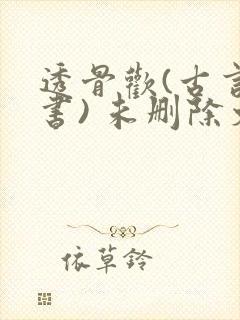 透骨歡(古言
書)未删除
依草鈴